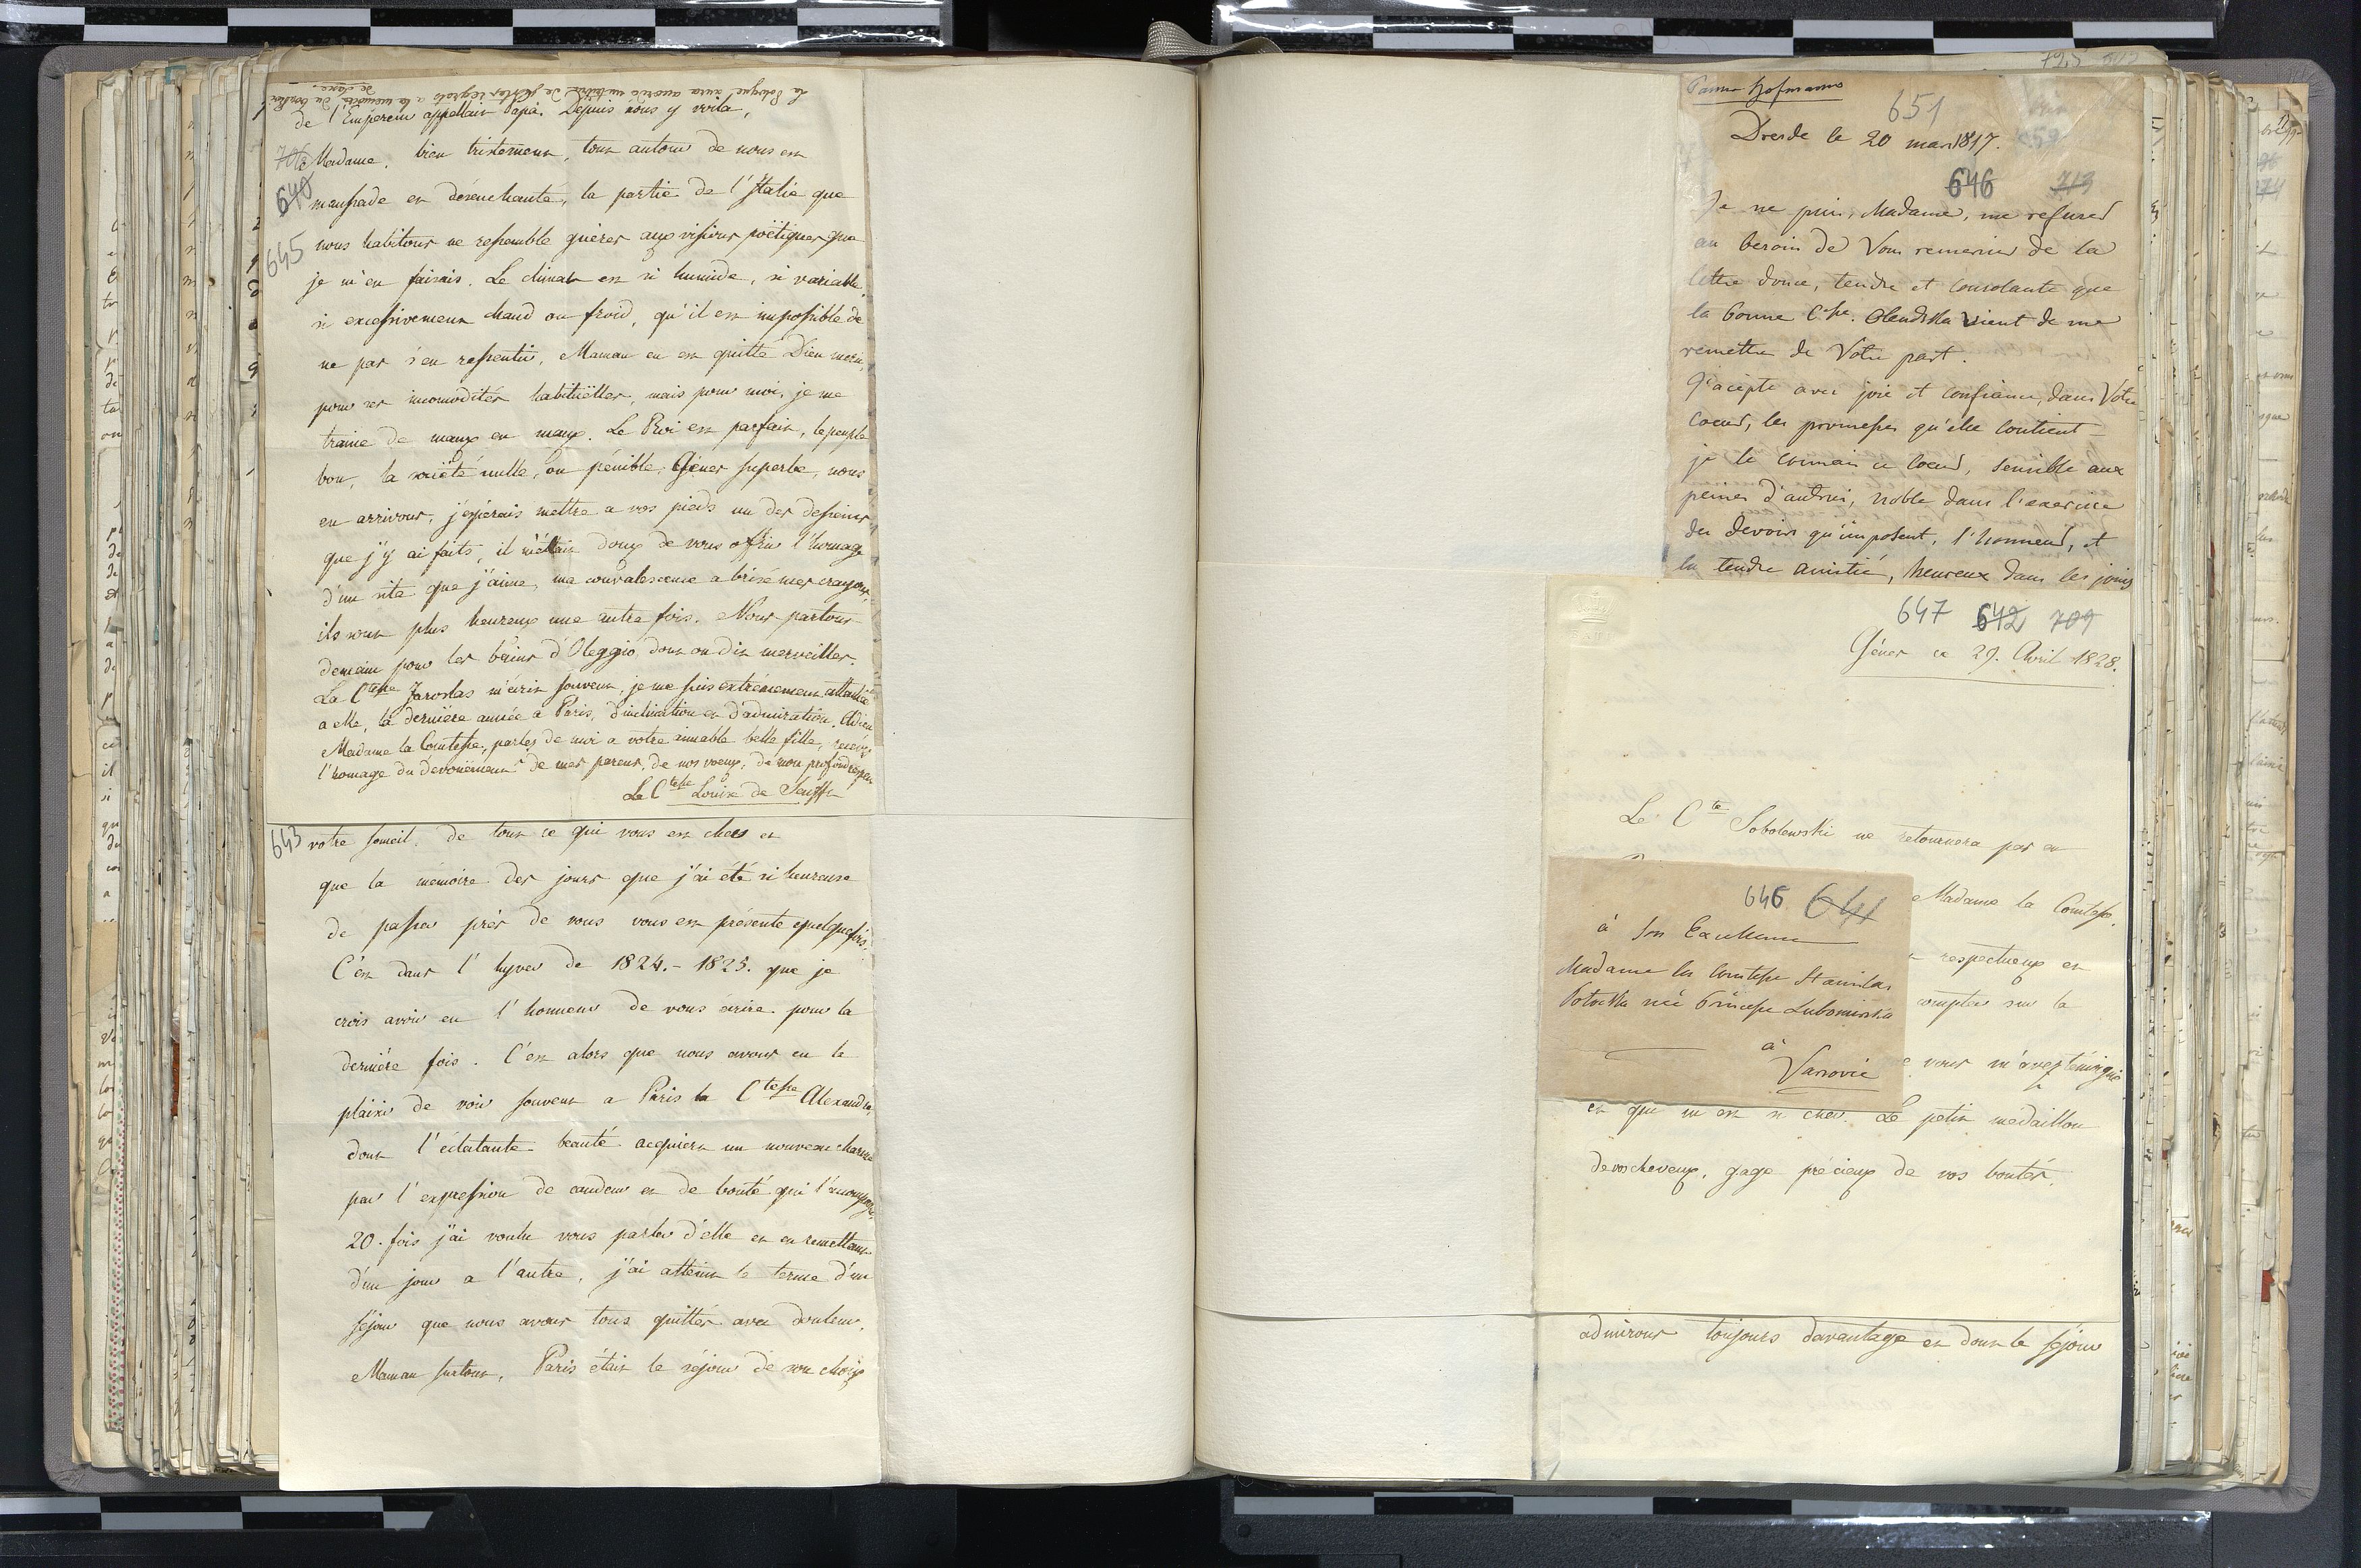 La Pologne aura accordé un tribut de justes regrets a la memoire du bon Roi
de Saxe.
de l'Empereur appellait Papa. Depuis nous y voila,
706 Madame, bien tristement, tout autour de nous est
640 maussade et désenchanté, la partie de l'Italie que
645 nous habitons ne ressemble guères aux visions poëtiques que
je m'en faisais. Le climat est si humide, si variable,
si excessivement chaud ou froid, qu'il est impossible de
ne pas s'en ressentir, Maman en est quitte Dieu merci,
pour ses incomodités habituëlles, mais pour moi, je me
traine de maux en maux. Le Roi est parfait, le peuple
bon, la société nulle, ou pénible, Gènes superbe, nous
en arrivons, j'espérais mettre a vos pieds un des desseins
que j'y ai faits, il m'était doux de vous offrir l'homage
d'un site que j'aime, ma convalescence a brisé mes crayons,
ils sont plus heureux une autre fois. Nous partons
demain pour les bains d'Oleggio dont on dit merveilles.
La Ctesse Jaroslas m'écrit souvent, je me suis extrêmement attachée
a elle, la dernière année a Paris, d'inclination et d'admiration. Adieu
Madame la Comtesse, parlez de moi a votre aimable belle fille, recevez
l'homage du dévouëment de mes parens, de nos voeux, de mon profond respect
La Ctesse Louise de Senfft
643 votre someil, de tout ce qui vous est cher et
que la mémoire des jours que j'ai été si heureuse
de passer près de vous vous est présente quelquefois.
C'est dans l'hyver de 1824.-1825. que je
crois avoir eu l'honneur de vous écrire pour la
dernière fois. C'est alors que nous avons eu le
plaisir de voir souvent a Paris la Ctesse Alexandre,
dont l'éclatante beauté acquiert un nouveau charme
par l'expression de candeur et de bonté qui l'accompagne,
20. fois j'ai voulu vous parler d'elle et en remettant
d'un jour a l'autre, j'ai atteint le terme d'un
séjour que nous avons tous quittés avec douleur,
Maman surtout, Paris était le séjour de son choix
Panna Hofmanns
651
Dresde le 20 mars 1817.
646 713
Je ne puis, Madame, me refuser
au besoin de Vous remercier de la
lettre douce, tendre et consolante que
la bonne Csse. Olendska vient de me
remettre de Votre part.
J'acepte avec joie et confiance, dans Votre
coeur, les promesses qu'elle contient -
je le connais ce coeur, sensible aux
peines d'autrui, noble dans l'exercice
du devoir qu'imposent, l'honneur, et
la tendre amitié, heureux dans les joies
647 642 709
Gènes ce 29. Avril 1828.
Le Cte Sobolewski ne retournera pas en
Madame la Comtesse,
respectueux et
compter sur la
vous m'avez témoigné
et qui m'est si cher. Le petit médaillon
de vos cheveux, gage précieux de vos bontés,
646 641
à Son Excellence
Madame la Comtesse Stanislas
Potocka née Princesse Lubomirska
à
Varsovie
admirons toujours davantage et dont le séjour